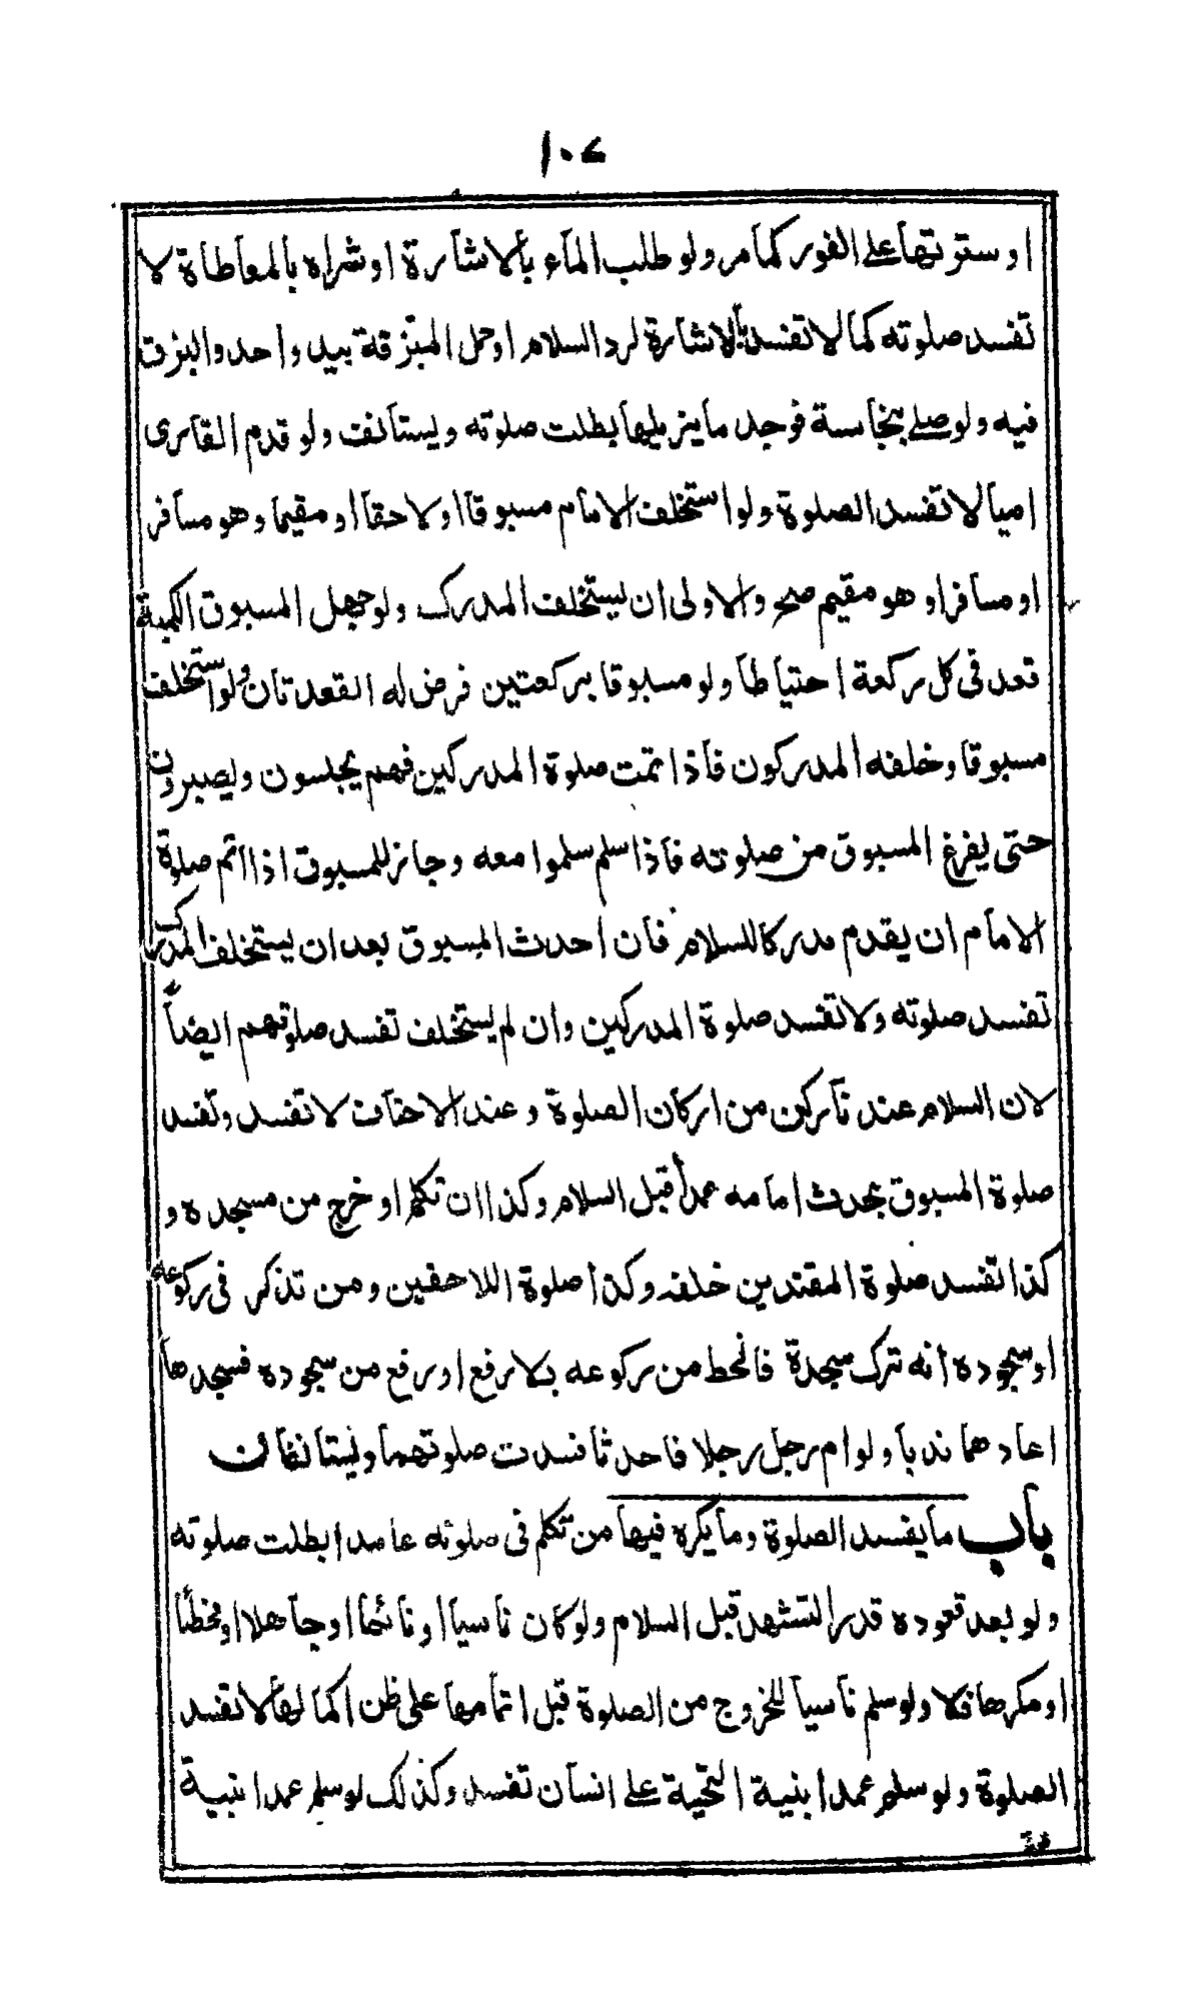 ١٠٧
او سترتها على الفور كما مر ولو طلب الماء بالاشارة او شراه بالمعاطاة لا
تفسد صلوته كما لا تفسد بالاشارة لرد السلام او حمل المبزقة بيد واحد والبزق
فيه ولو صلى بنجاسة فوجد ما يزيلها بطلت صلوته ويستانف ولو قدم القارى
اميا لا تفسد الصلوة ولو استخلف الامام مسبوقا او لاحقا او مقيما وهو مسافر
او مسافرا وهو مقيم صح والاولى ان يستخلف المدرك ولو جهل المسبوق الكمية
قعد فى كل ركعة احتياطا ولو مسبوقا بركعتين فرض له القعدتان ولو استخلف
مسبوقا وخلفه المدركون فاذا تمت صلوة المدركين فهم يجلسون ويصبرون
حتى يفرغ المسبوق من صلوته فاذا سلم سلموا معه وجاز للمسبوق اذا اتم صلوة
الامام ان يقدم مدركا للسلام فان احدث المسبوق بعد ان يستخلف المدرك
تفسد صلوته ولا تفسد صلوة المدركين وان لم يستخلف تفسد صلوتهم ايضاً
لان السلام عندنا ركن من اركان الصلوة وعند الاحناف لا تفسد وتفسد
صلوة المسبوق بحدث امامه عمداً قبل السلام وكذا ان تكلم او خرج من مسجده و
كذا تفسد صلوة المقتدين خلفه وكذا صلوة اللاحقين ومن تذكر فى ركوعه
او سجوده انه ترك سجدة فانحط من ركوعه بلا رفع او رفع من سجوده فسجدها
اعادهما ندبا ولو ام رجل رجلا فاحدثا فسدت صلوتهما ويستانفان
باب ما يفسد الصلوة وما يكره فيها من تكلم فى صلوته عامدا بطلت صلوته
ولو بعد قعوده قدر التشهد قبل السلام ولو كان ناسيا او نائما او جاهلا او مخطئا
او مكرها فلا ولو سلم ناسيا للخروج من الصلوة قبل اتمامها على ظن اكمالها لا تفسد
الصلوة ولو سلم عمدا بنية التحية على انسان تفسد وكذلك لو سلم عمدا بنية